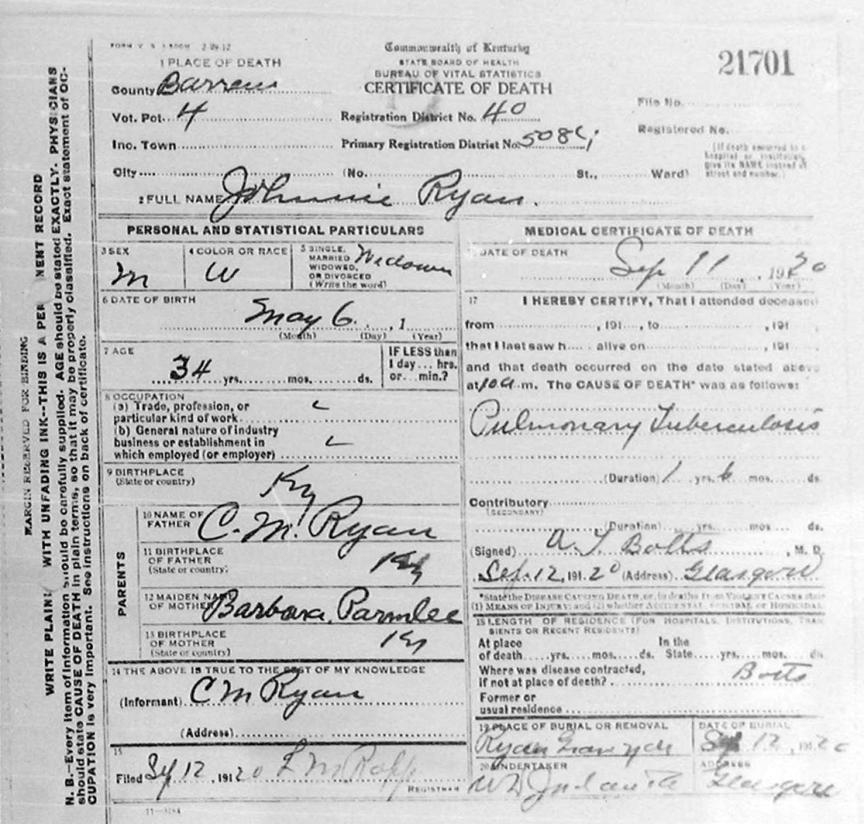 FORM V. S.
Commonwealth of Kentucky
STATE BOARD OF HEALTH
BUREAU OF VITAL STATISTICS
CERTIFICATE OF DEATH
21701
1 PLACE OF DEATH
County Barren
Vot. Pct. 4
Registration District No. 40
File No.
Inc. Town
Primary Registration District No.
Registered No.
City (No. St., Ward)
(If death occurred in a hospital or institution, give its NAME instead of street and number.)
2 FULL NAME Johnnie Ryan.
PERSONAL AND STATISTICAL PARTICULARS
3 SEX
M
4 COLOR OR RACE
W
5 SINGLE, MARRIED WIDOWED, OR DIVORCED (Write the word)
6 DATE OF BIRTH
May 6, 1
(Month) (Day) (Year)
7 AGE
34 yrs. mos. ds.
IF LESS than 1 day... hrs. or... min.?
8 OCCUPATION
(a) Trade, profession, or
particular kind of work
(b) General nature of industry
business or establishment in
which employed (or employer)
9 BIRTHPLACE
(State or country)
Ky
PARENTS
10 NAME OF FATHER C. M. Ryan
11 BIRTHPLACE OF FATHER
(State or country)
Ky
12 MAIDEN NAME OF MOTHER Barbara Parmlee
13 BIRTHPLACE OF MOTHER
(State or country)
Ky
14 THE ABOVE IS TRUE TO THE BEST OF MY KNOWLEDGE
(Informant) C M Ryan
(Address)
15
Filed Sep 12, 1920
REGISTRAR
MEDICAL CERTIFICATE OF DEATH
DATE OF DEATH
Sep 11, 1920
(Month) (Day) (Year)
17 I HEREBY CERTIFY, That I attended deceased
from , 191 , to , 191
that I last saw h alive on , 191
and that death occurred on the date stated above
at 10 a m. The CAUSE OF DEATH* was as follows:
Pulmonary Tuberculosis
(Duration) 1 yrs. 6 mos. ds.
Contributory
(SECONDARY)
(Duration) yrs. mos. ds.
(Signed) , M. D.
Sep. 12, 19120 (Address) Glasgow
*State the DISEASE CAUSING DEATH, or, in deaths from VIOLENT CAUSES state
(1) MEANS OF INJURY; and (2) whether ACCIDENTAL, SUICIDAL or HOMICIDAL.
18 LENGTH OF RESIDENCE (FOR HOSPITALS, INSTITUTIONS, TRANSIENTS OR RECENT RESIDENTS)
At place of death yrs. mos. ds. In the State yrs. mos. ds.
Where was disease contracted,
if not at place of death?
Former or
usual residence
19 PLACE OF BURIAL OR REMOVAL
Ryan
DATE OF BURIAL
Sep 12, 1920
20 UNDERTAKER
ADDRESS
Glasgow
MARGIN RESERVED FOR BINDING
WRITE PLAIN WITH UNFADING INK--THIS IS A PER NENT RECORD
N. B.--Every item of information should be carefully supplied. AGE should be stated EXACTLY. PHYSICIANS
should state CAUSE OF DEATH in plain terms, so that it may be properly classified. Exact statement of OC-
CUPATION is very important. See instructions on back of certificate.